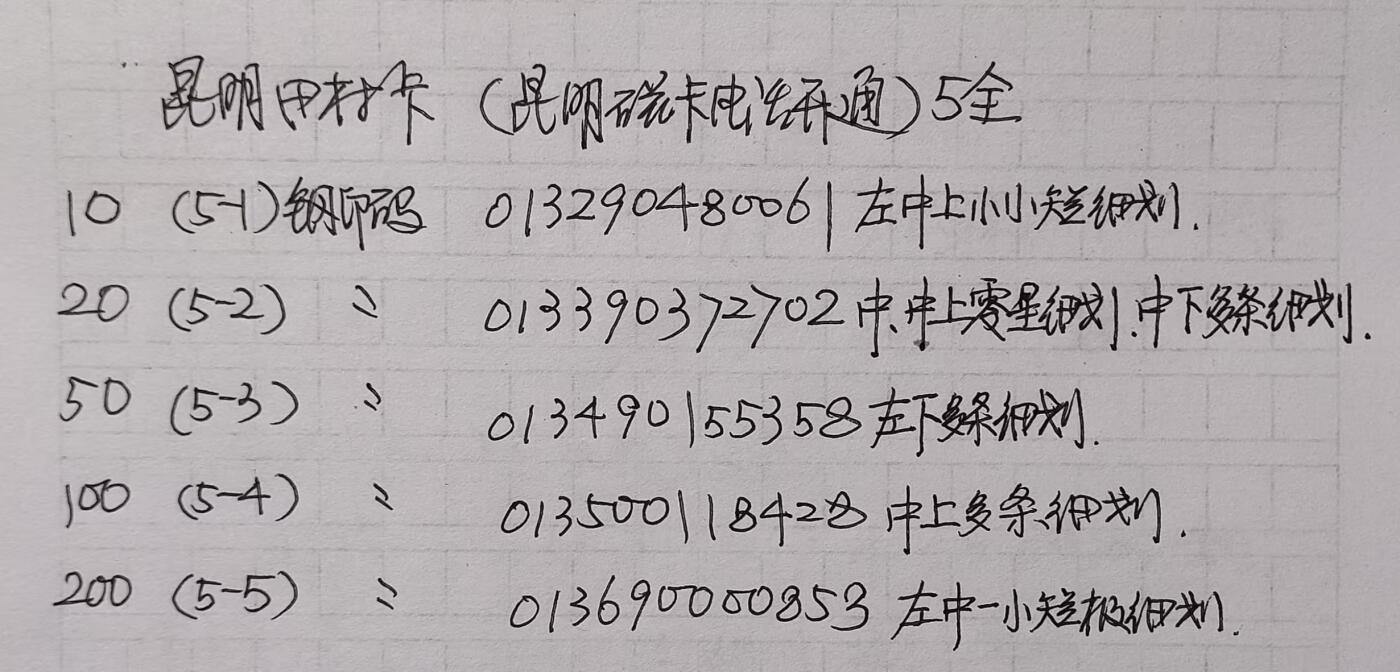 昆明田村卡（昆明磁卡电话开通）5全
10 (5-1)钢印码 013290480061 左中上小小短细划.
20 (5-2) 〃 013390372702 中、中上零星细划.中下多条细划.
50 (5-3) 〃 013490155358 左下多条细划.
100 (5-4) 〃 013500118428 中上多条细划.
200 (5-5) 〃 013690000853 左中一小短极细划.